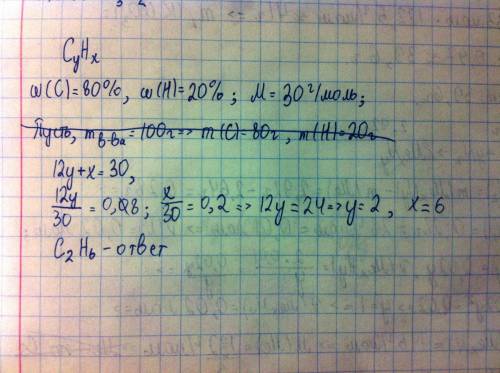 CyHx
ω(C)=80%, ω(H)=20%; M=30 г/моль;
Пусть, m в-ва=100г=> m(C)=80г, m(H)=20г
12y+x=30,
12y/30=0,8; x/30=0,2=>12y=24=>y=2, x=6
C2H6-ответ